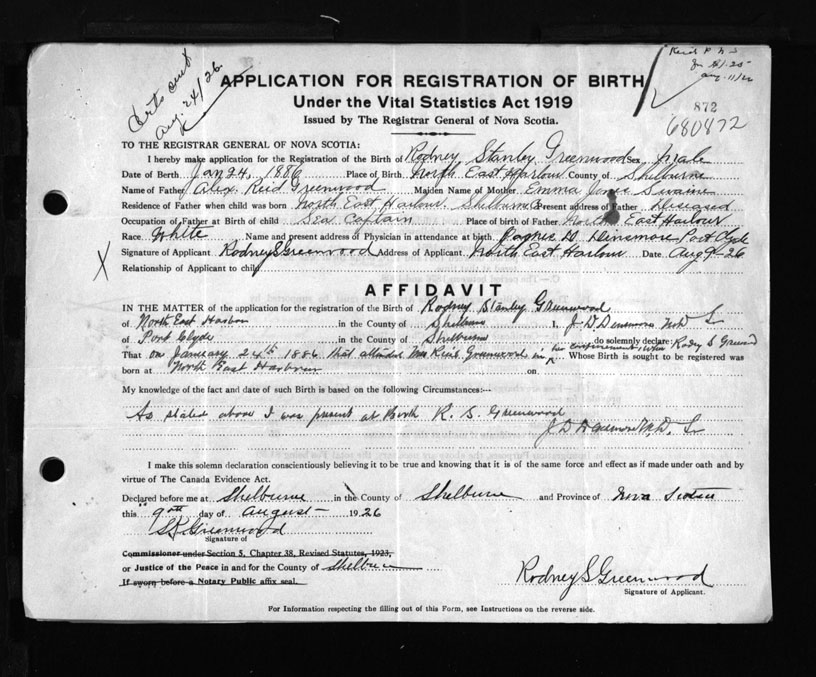 Certs sent
Aug. 24/26
Aug. 11/26
APPLICATION FOR REGISTRATION OF BIRTH
Under the Vital Statistics Act 1919
Issued by The Registrar General of Nova Scotia.
872
680872
TO THE REGISTRAR GENERAL OF NOVA SCOTIA:
I hereby make application for the Registration of the Birth of Rodney Stanley Greenwood Sex male
Date of Birth Jan 24, 1886 Place of Birth North East Harbour County of Shelburne
Name of Father Alex Reid Greenwood Maiden Name of Mother Emma Jones Swaine
Residence of Father when child was born North East Harbour Shelburne Present address of Father Deceased
Occupation of Father at Birth of child Sea Captain Place of birth of Father North East Harbour
Race White Name and present address of Physician in attendance at birth Densmore Port Clyde
Signature of Applicant Rodney S Greenwood Address of Applicant North East Harbour Date Aug 9-26
Relationship of Applicant to child
X
AFFIDAVIT
IN THE MATTER of the application for the registration of the Birth of Rodney Stanley Greenwood
of North East Harbour in the County of Shelburne I, J D Densmore M.D. Sr
of Port Clyde in the County of Shelburne do solemnly declare:
That on January 24th 1886 that attended Mrs Reid Greenwood in her confinement when Rodney S Greenwood Whose Birth is sought to be registered was
born at North East Harbour on
My knowledge of the fact and date of such Birth is based on the following Circumstances:--
As stated above I was present at Birth R. S. Greenwood
J D Densmore M.D. Sr
I make this solemn declaration conscientiously believing it to be true and knowing that it is of the same force and effect as if made under oath and by
virtue of The Canada Evidence Act.
Declared before me at Shelburne in the County of Shelburne and Province of Nova Scotia
this 9th day of August 1926
Greenwood
Signature of
Commissioner under Section 5, Chapter 38, Revised Statutes, 1923,
or Justice of the Peace in and for the County of Shelburne
If sworn before a Notary Public affix seal.
Rodney S Greenwood
Signature of Applicant.
For Information respecting the filling out of this Form, see Instructions on the reverse side.